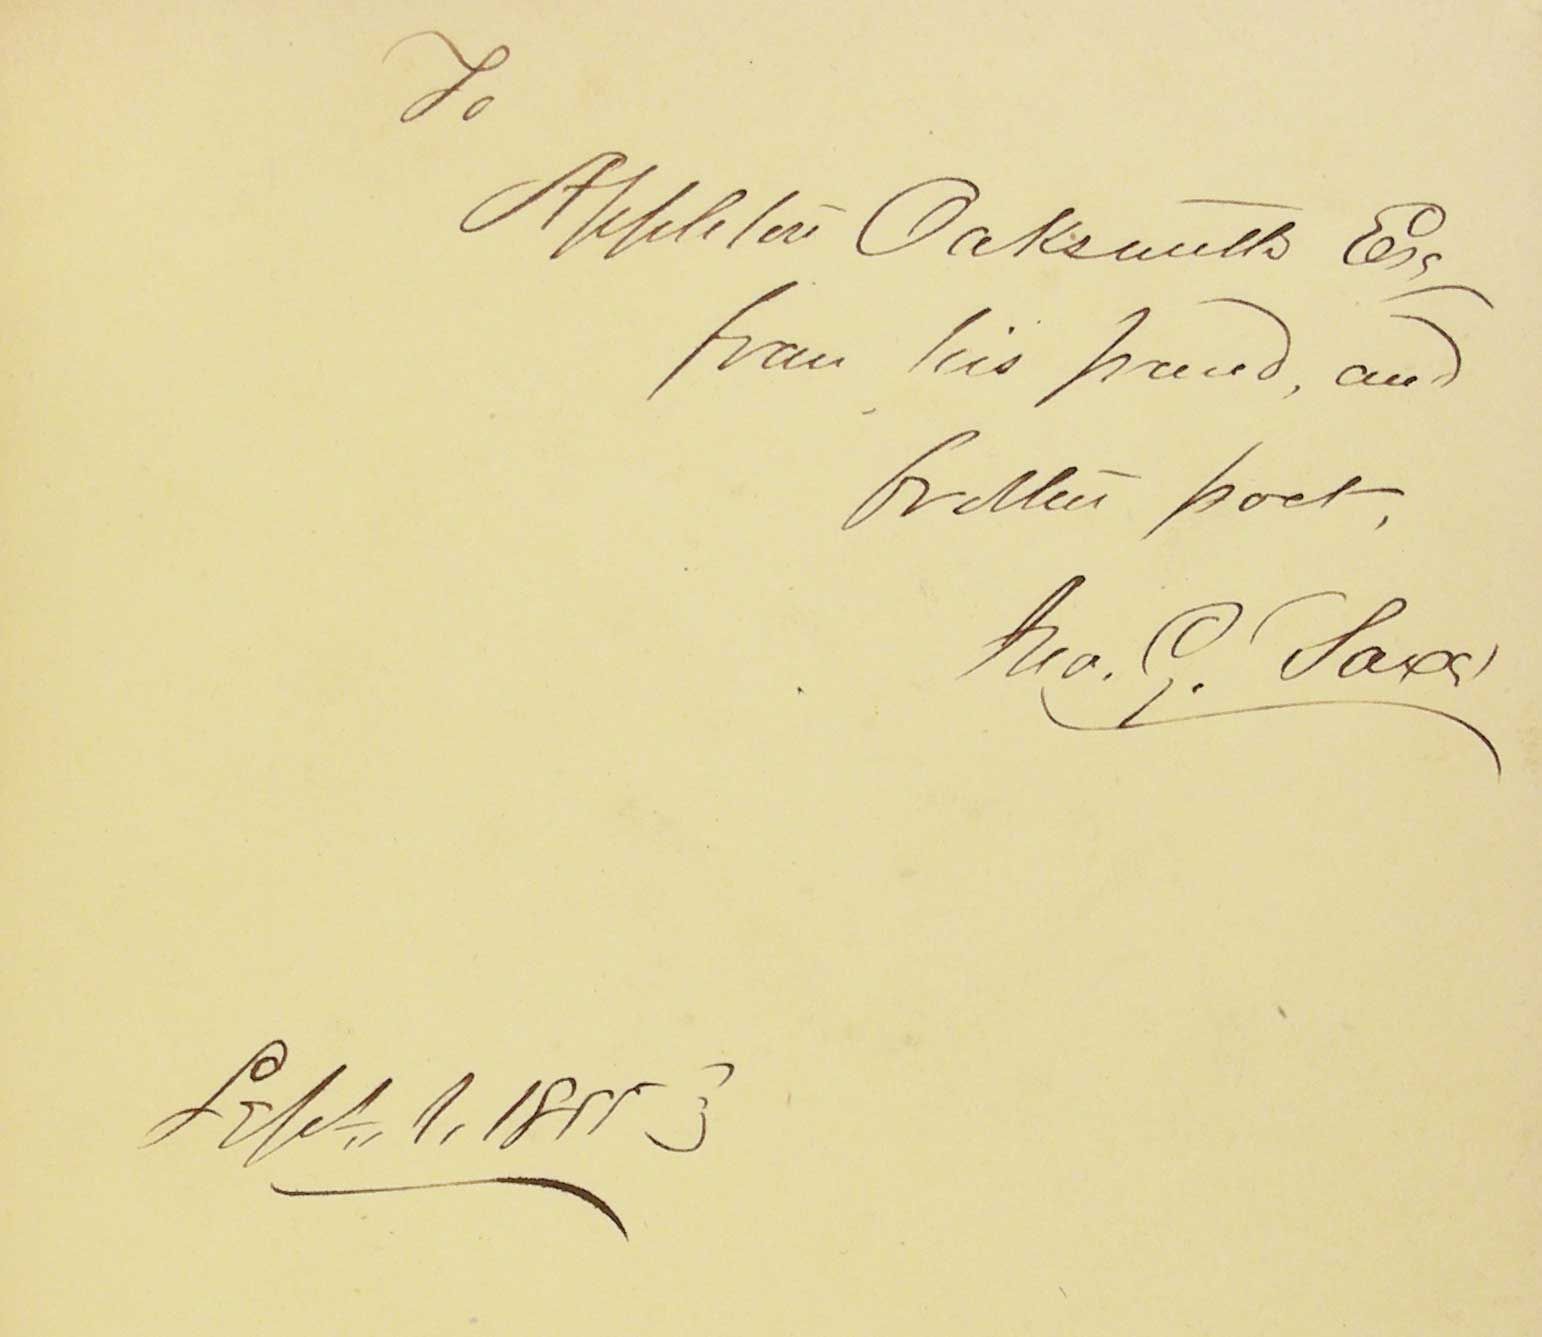 To
Appleton Oaksmith Esq
from his friend, and
brother poet,
Jno. G. Saxe
Sept. 1, 1853